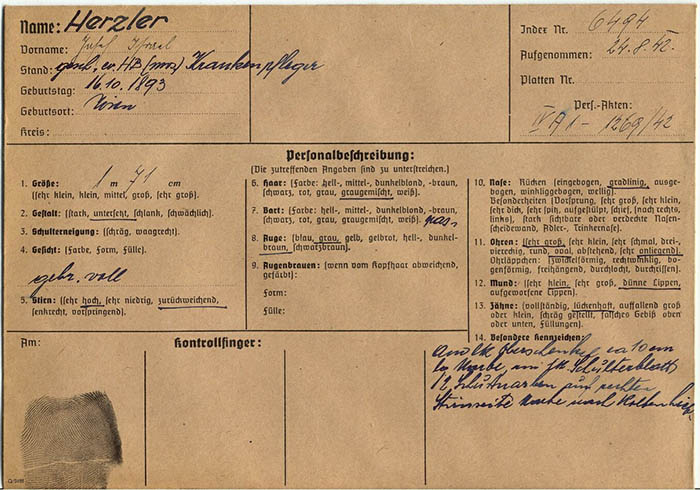 Name: Herzler
Vorname: Josef Israel
Stand: gesch., ev. HB (moz) Krankenpfleger
Geburtstag: 16.10.1893
Geburtsort: Wien
Kreis:
Index Nr. 6494
Aufgenommen: 24.8.42.
Platten Nr.
Pers.-Akten:
IV A 1 - 1269/42
Personalbeschreibung:
(Die zutreffenden Angaben sind zu unterstreichen.)
1. Größe: 1 m 71 cm
(sehr klein, klein, mittel, groß, sehr groß).
2. Gestalt: (stark, untersetzt, schlank, schwächlich).
3. Schulterneigung: (schräg, waagrecht).
4. Gesicht: (Farbe, Form, Fülle).
gebr. voll
5. Stirn: (sehr hoch, sehr niedrig, zurückweichend,
senkrecht, vorspringend).
6. Haar: (Farbe: hell-, mittel-, dunkelblond, -braun,
schwarz, rot, grau, graugemischt, weiß).
7. Bart: (Farbe: hell-, mittel-, dunkelblond, -braun,
schwarz, rot, grau, graugemischt, weiß)
8. Auge: (blau, grau, gelb, gelbrot, hell-, dunkel-
braun, schwarzbraun).
9. Augenbrauen: (wenn vom Kopfhaar abweichend,
gefärbt):
Form:
Fülle:
10. Nase: Rücken (eingebogen, gradlinig, ausge-
bogen, winkliggebogen, wellig).
Besonderheiten (Vorsprung, sehr groß, sehr klein,
sehr dick, sehr spitz, aufgestülpt, schief, (nach rechts,
links), stark sichtbare oder verdeckte Nasen-
scheidewand, Adler-, Trinkernase).
11. Ohren: (sehr groß, sehr klein, sehr schmal, drei-
viereckig, rund, oval, abstehend, sehr anliegend).
Ohrläppchen: (zwickelförmig, rechtwinklig, bo-
genförmig, freihängend, durchlocht, durchrissen).
12. Mund: (sehr klein, sehr groß, dünne Lippen,
aufgeworfene Lippen).
13. Zähne: (vollständig, lückenhaft, auffallend groß
oder klein, schräg gestellt, falsches Gebiß oben
oder unten, Füllungen).
14. Besondere Kennzeichen:
Am lk. Oberschenkel ca 10 cm
lg Narbe, am lk. Schulterblatt
12 Schußnarben auf rechter
Stirnseite Narbe nach Kolbenhieb
Am:
Kontrollfinger: